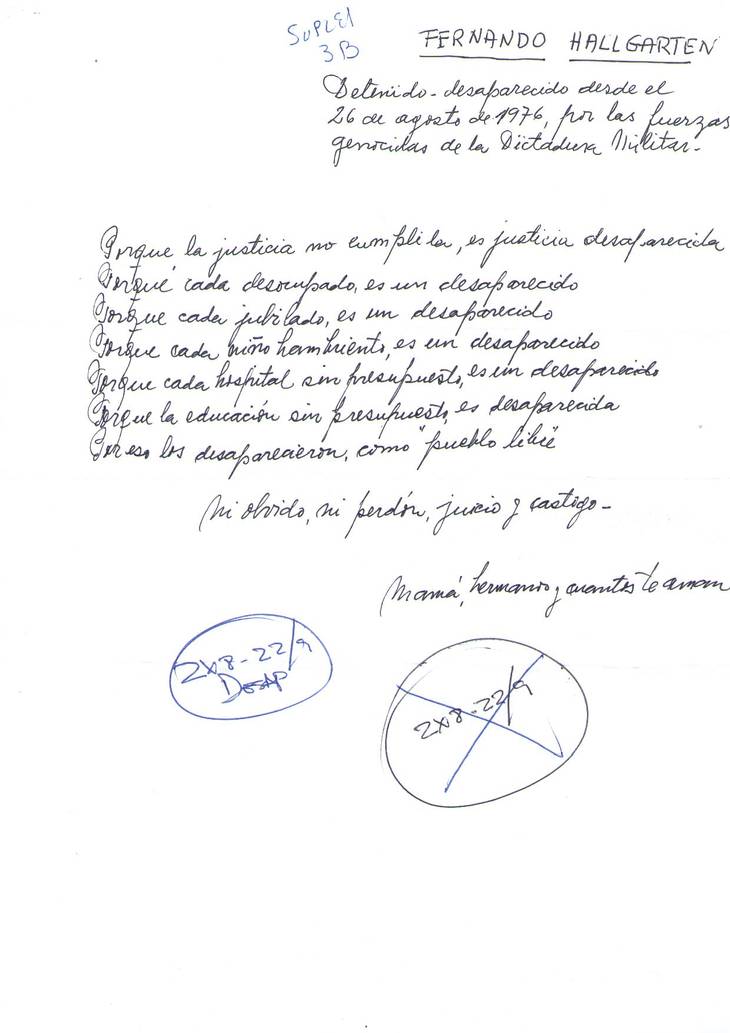 SUPLEI
3B
FERNANDO HALLGARTEN
Detenido-desaparecido desde el
26 de agosto de 1976, por las fuerzas
genocidas de la Dictadura Militar-
Porque la justicia no cumplida, es justicia desaparecida
Porqué cada desocupado, es un desaparecido
Porque cada jubilado, es un desaparecido
Porque cada niño hambriento, es un desaparecido
Porque cada hospital sin presupuesto, es un desaparecido
Porque la educación sin presupuesto, es desaparecida
Por eso los desaparecieron, como "pueblo libre"
Ni olvido, ni perdón, juicio y castigo-
Mamá, hermanos y cuantos te aman
2x8-22/9
DESAP
2x8-22/9